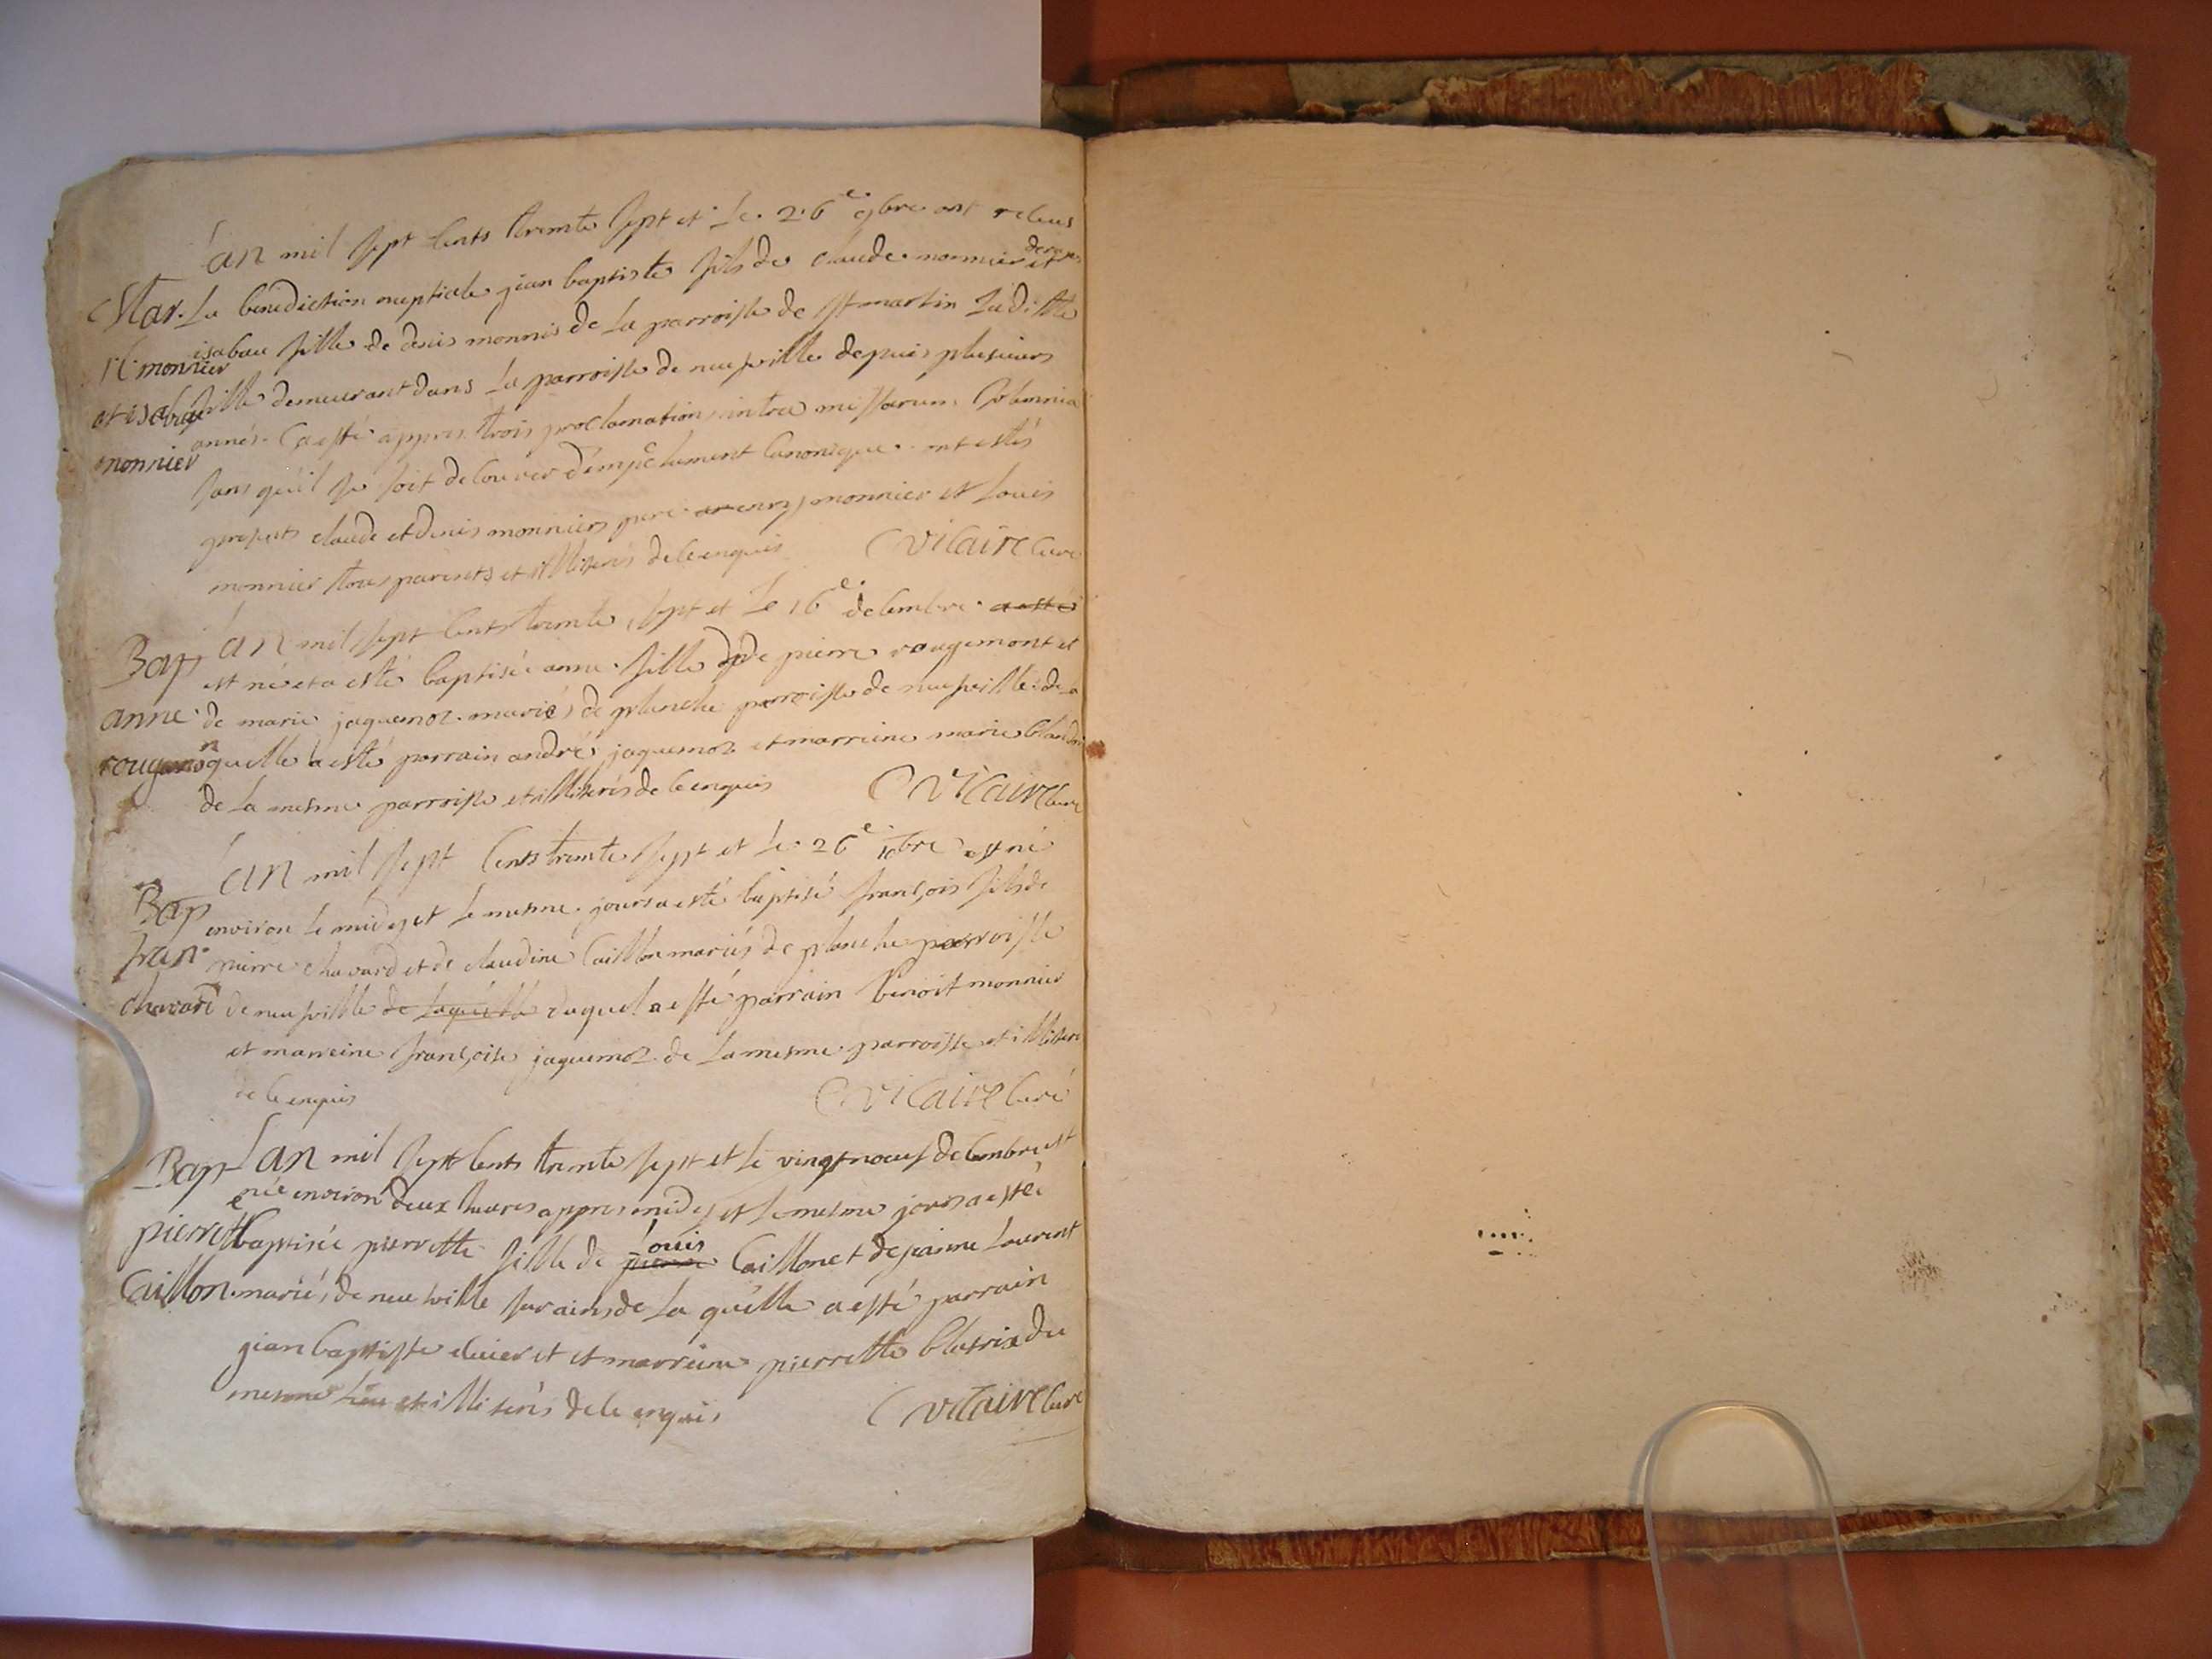 Lan mil sept cents trente sept et le 26e 9bre ont receus
Mar. La benediction nuptiale jean baptiste fils de claude monnier et
isabau fille de denis monnier de la parroisse de st martin ladite
J. monnier
fille demeurant dans la parroisse de neufville depuis plusieurs
et isabau
années. Ca esté appres trois proclamations intra missarum solemnia
monnier
sans qu'il se soit decouver d'empechement canonique. ont estés
presents claude et denis monniers pere monnier et louis
monnier tous parents et illiterés de ce enquis Vicaire curé
Lan mil sept cents trente sept et le 16e decembre a esté
Bap est né et a esté baptisée anne fille de pierre rougemont et
anne de marie jaquemoz mariés de planche parroisse de neufville de la
rougemon quelle a esté parrain andré jaquemoz et marreine marie blandin
de la mesme parroisse et illiterés de ce enquis Vicaire curé
Lan mil sept cents trente sept et le 26e 10bre est né
Bap environ le midy et le mesme jour a esté baptisé françois fils de
fran. pierre chavard et de claudine Caillon mariés de planche parroisse
chavard de neufville de laquelle duquel a esté parrain benoit monnier
et marreine françoise jaquemoz de la mesme parroisse et illiteré
de ce enquis Vicaire curé
Bap Lan mil sept cents trente sept et le vingt noeuf decembre est
née environ deux heures appres midy et le mesme jour a esté
pierrette baptisée pierrette fille de pierre louis Caillon et de jeanne laurent
Caillon mariés de neufville de la quelle a esté parrain
jean baptiste et marreine pierrette du
mesme lieu et illiterés de ce enquis Vicaire curé